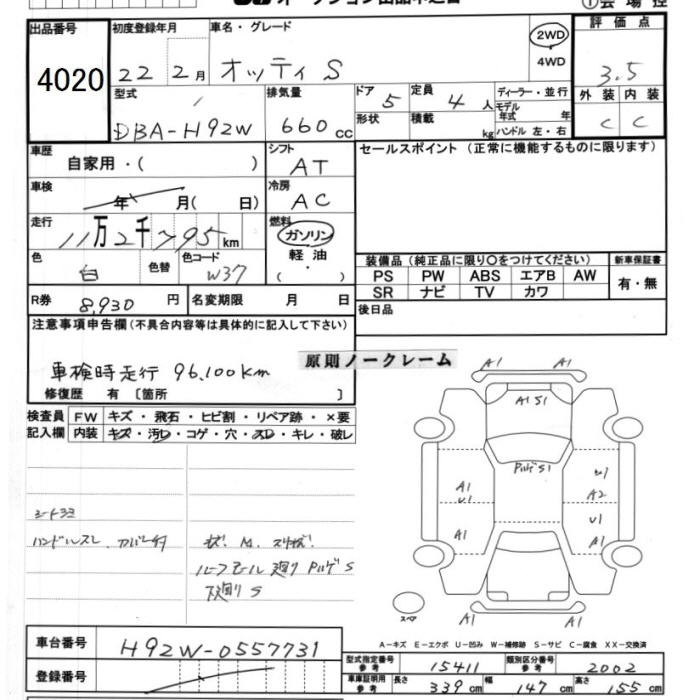 出品番号
4020
初度登録年月
22 2月
車名・グレード
オッティ S
2WD
4WD
評価点
3.5
型式
DBA-H92W
排気量
660 cc
ドア 5
形状
定員 4 人
積載 kg
ディーラー・並行
モデル年式 年
ハンドル 左・右
外装 内装
C C
車歴
自家用・( )
シフト
AT
セールスポイント (正常に機能するものに限ります)
車検
年 月( 日)
冷房
AC
走行
11万2千795 km
燃料
ガソリン
軽油
・
( )
色
白
色替
色コード
W37
装備品 (純正品に限り〇をつけてください)
新車保証書
PS PW ABS エアB AW
SR ナビ TV カワ
有・無
R券 8,930 円
名変期限 月 日
後日品
注意事項申告欄 (不具合内容等は具体的に記入して下さい)
車検時走行 96,100km
原則ノークレーム
修復歴 有 〔箇所 〕
検査員
記入欄
FW キズ・飛石・ヒビ割・リペア跡・×要
内装 キズ・汚レ・コゲ・穴・スレ・キレ・破レ
シートヨゴ
ハンドルスレ カバー付
ルーフモール廻り Pハゲ S
下廻り S
A1 A1
A1 S1
Pハゲ S1
A1
U1
A1
U1
A2
U1
A1
スペア
A1 A1
A-キズ E-エクボ U-凹み W-補修跡 S-サビ C-腐食 XX-交換済
車台番号
H92W-0557731
登録番号
型式指定番号
参考
15411
類別区分番号
参考
2002
車庫証明用
参考
長さ 339 cm
幅 147 cm
高さ 155 cm